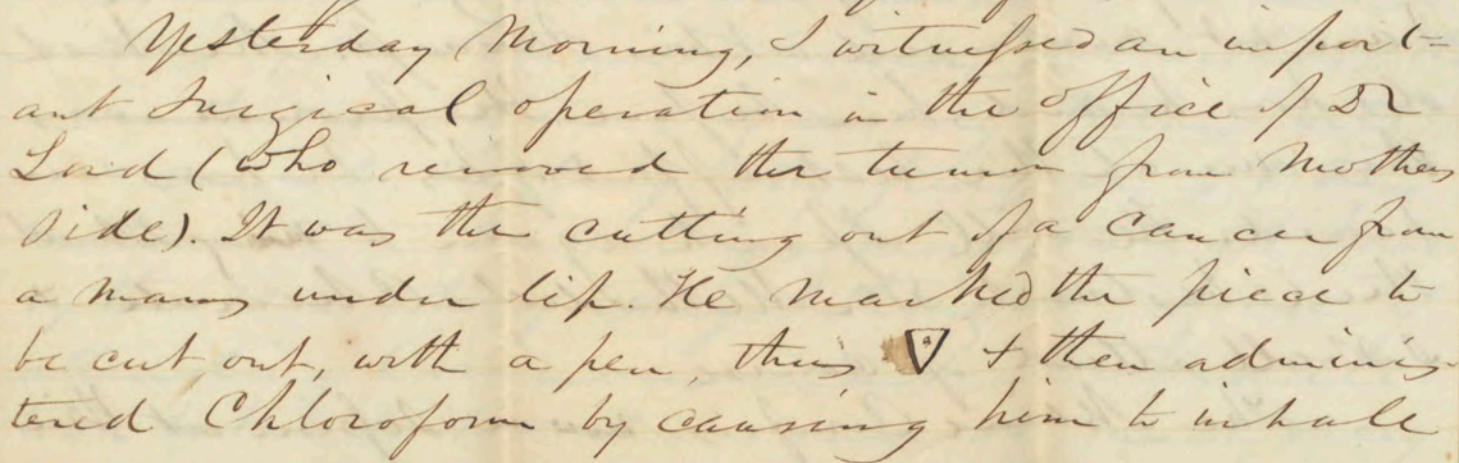 Yesterday Morning, I witnessed an import=
ant Surgical operation in the office of Dr
Lord (who removed the tumor from Mothers
side). It was the cutting out of a Cancer from
a mans under lip. He marked the piece to
be cut out, with a pen, thus ▽ & then adminis-
tered Chloroform by causing him to inhale